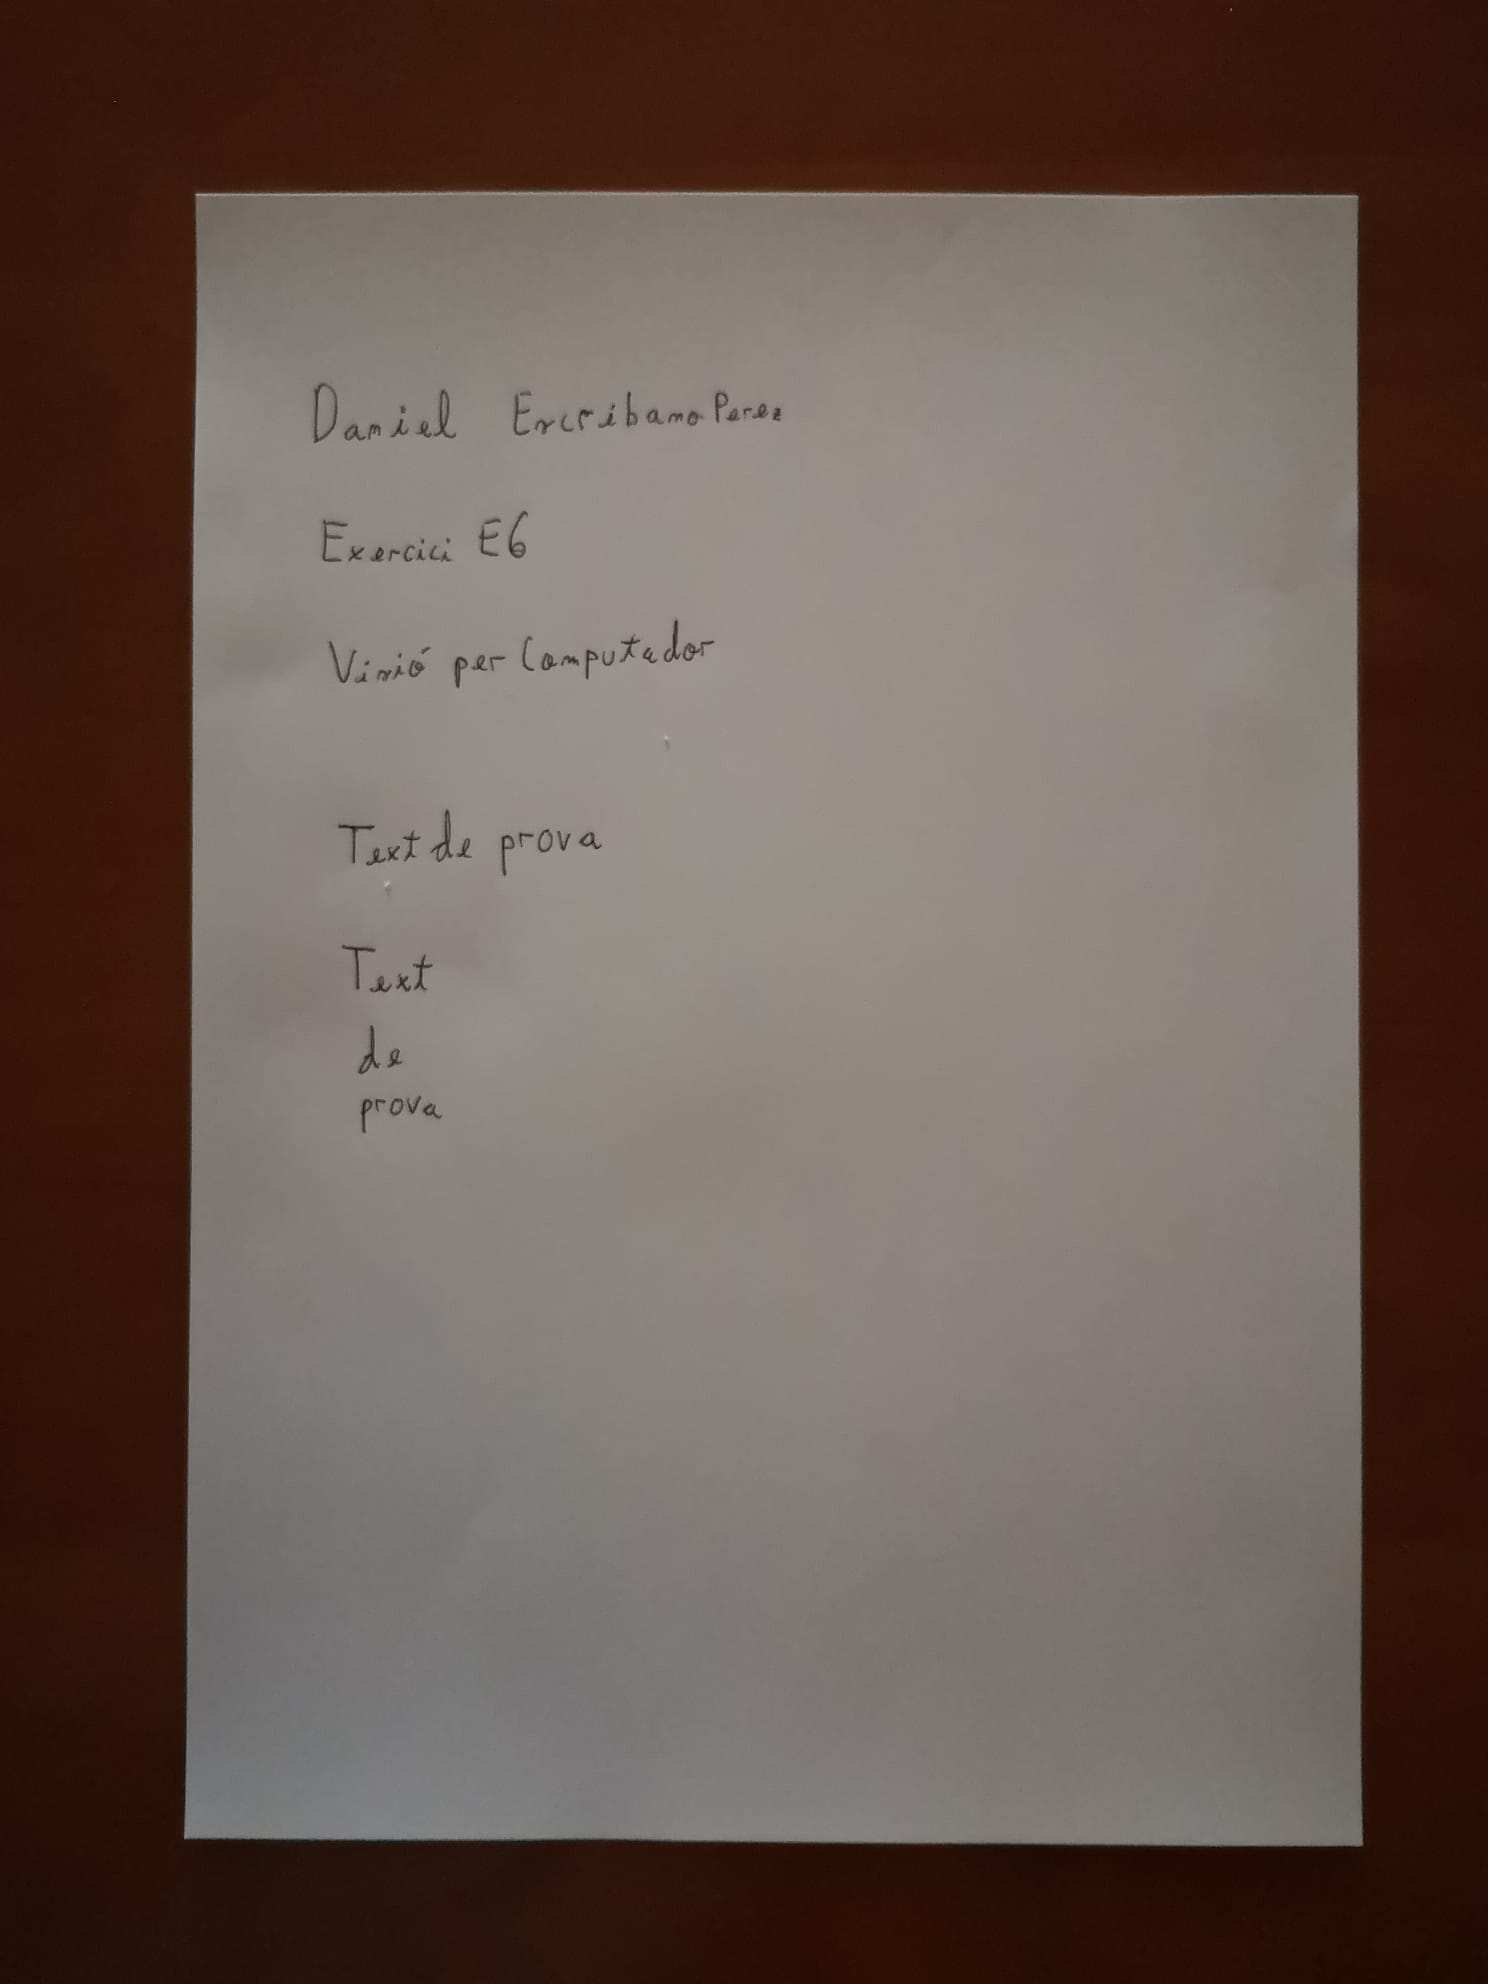 Daniel Escribano Perez
Exercici E6
Visió per Computador
Text de prova
Text
de
prova